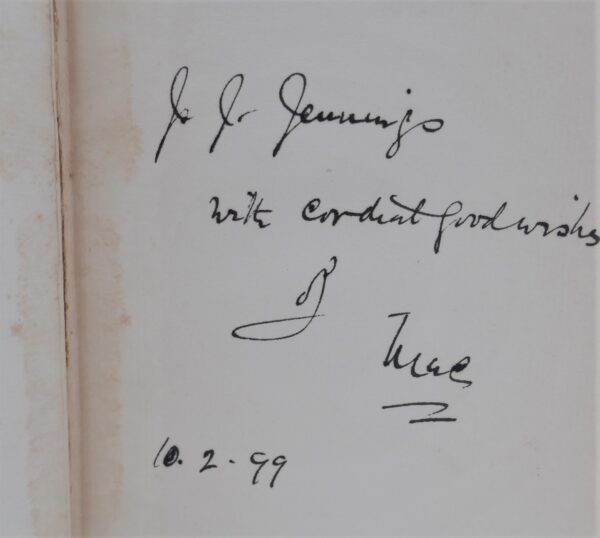 J. J. Jennings
with cordial good wishes
of
Mac
10.2.99